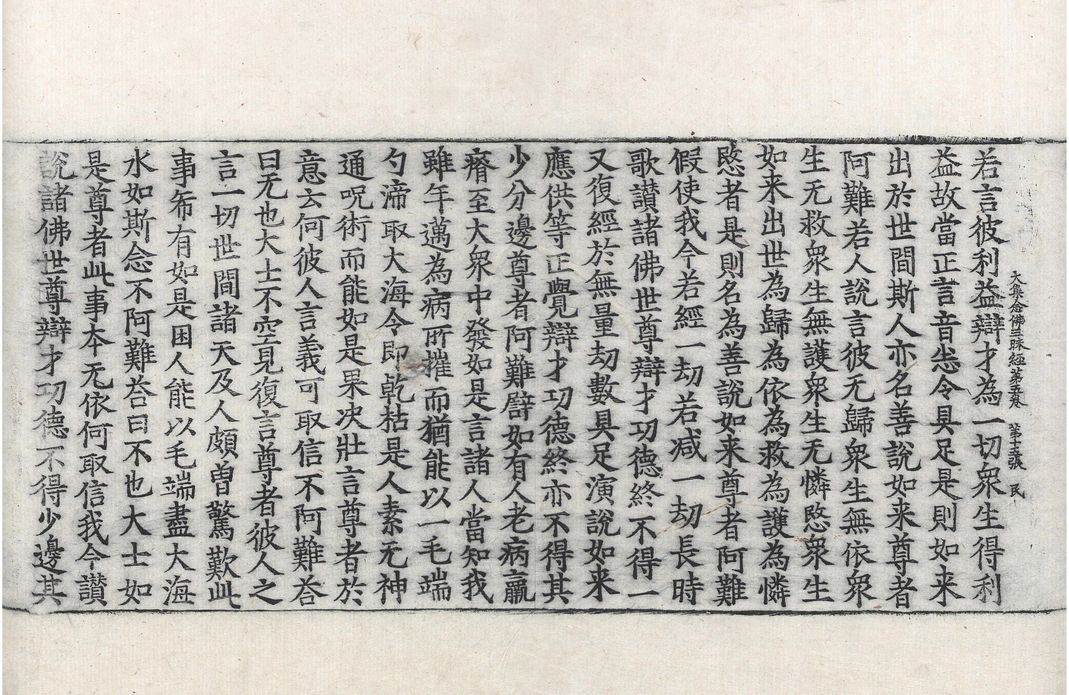 大集念佛三昧經第五卷 第十五張 民
若言彼利益辯才為一切衆生得利
益故當正言音悉令具足是則如来
出於世間斯人亦名善說如来尊者
阿難若人說言彼无歸衆生無依衆
生无救衆生無護衆生无憐愍衆生
如来出世為歸為依為救為護為憐
愍者是則名為善說如来尊者阿難
假使我今若經一劫若减一劫長時
歌讃諸佛世尊辯才功德終不得一
又復經於無量劫數具足演說如来
應供等正覺辯才功德終亦不得其
少分邊尊者阿難譬如有人老病羸
瘠至大衆中發如是言諸人當知我
雖年邁為病所摧而猶能以一毛端
勺渧取大海令即乾枯是人素无神
通呪術而能如是果决壯言尊者於
意云何彼人言義可取信不阿難荅
曰无也大士不空見復言尊者彼人之
言一切世間諸天及人頗曽驚歎此
事希有如是困人能以毛端盡大海
水如斯念不阿難荅曰不也大士如
是尊者此事本无依何取信我今讃
說諸佛世尊辯才功德不得少邊其